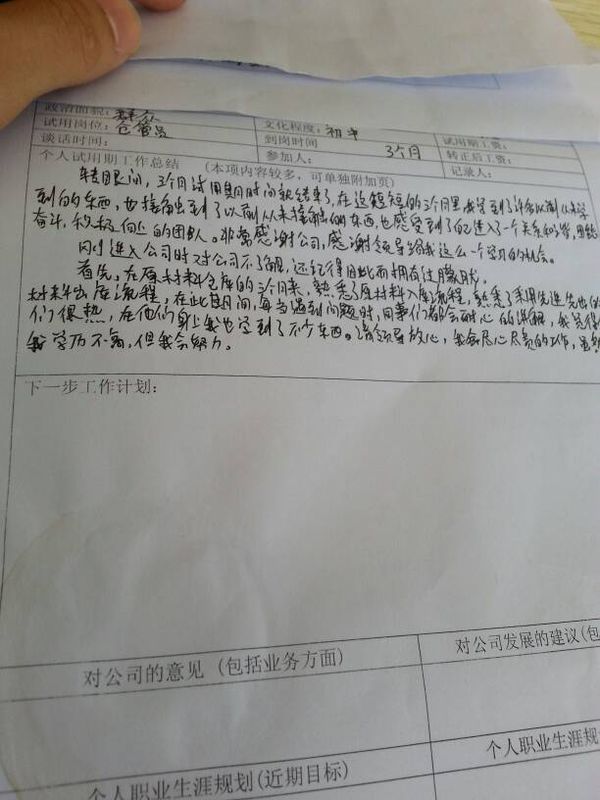 政治面貌：群众
试用岗位：仓管员 文化程度：初中 试用期工资：
谈话时间： 到岗时间 3个月 转正后工资：
个人试用期工作总结 （本项内容较多，可单独附加页） 参加人： 记录人：
转眼间，3个月试用期时间就结束了，在这短短的3个月里我学到了许多以前从未学
到的东西，也接触到了以前从未接触的东西，也感受到了自己进入了一个关系和谐，团结
奋斗，积极向上的团队。非常感谢公司，感谢领导给我这么一个学习的机会。
刚进入公司时对公司不了解，还记得因此而拥有过朦胧。
首先，在原材料仓库的3个月来，熟悉了原材料入库流程，熟悉了采用先进先出的
材料出库流程，在此期间，每当遇到问题时，同事们都会耐心的讲解，我觉得
们很热，在他们身上我也学到了不少东西。请领导放心，我会尽心尽责的工作，虽然
我学历不高，但我会努力。
下一步工作计划：
对公司的意见（包括业务方面） 对公司发展的建议（包
个人职业生涯规划（近期目标） 个人职业生涯规